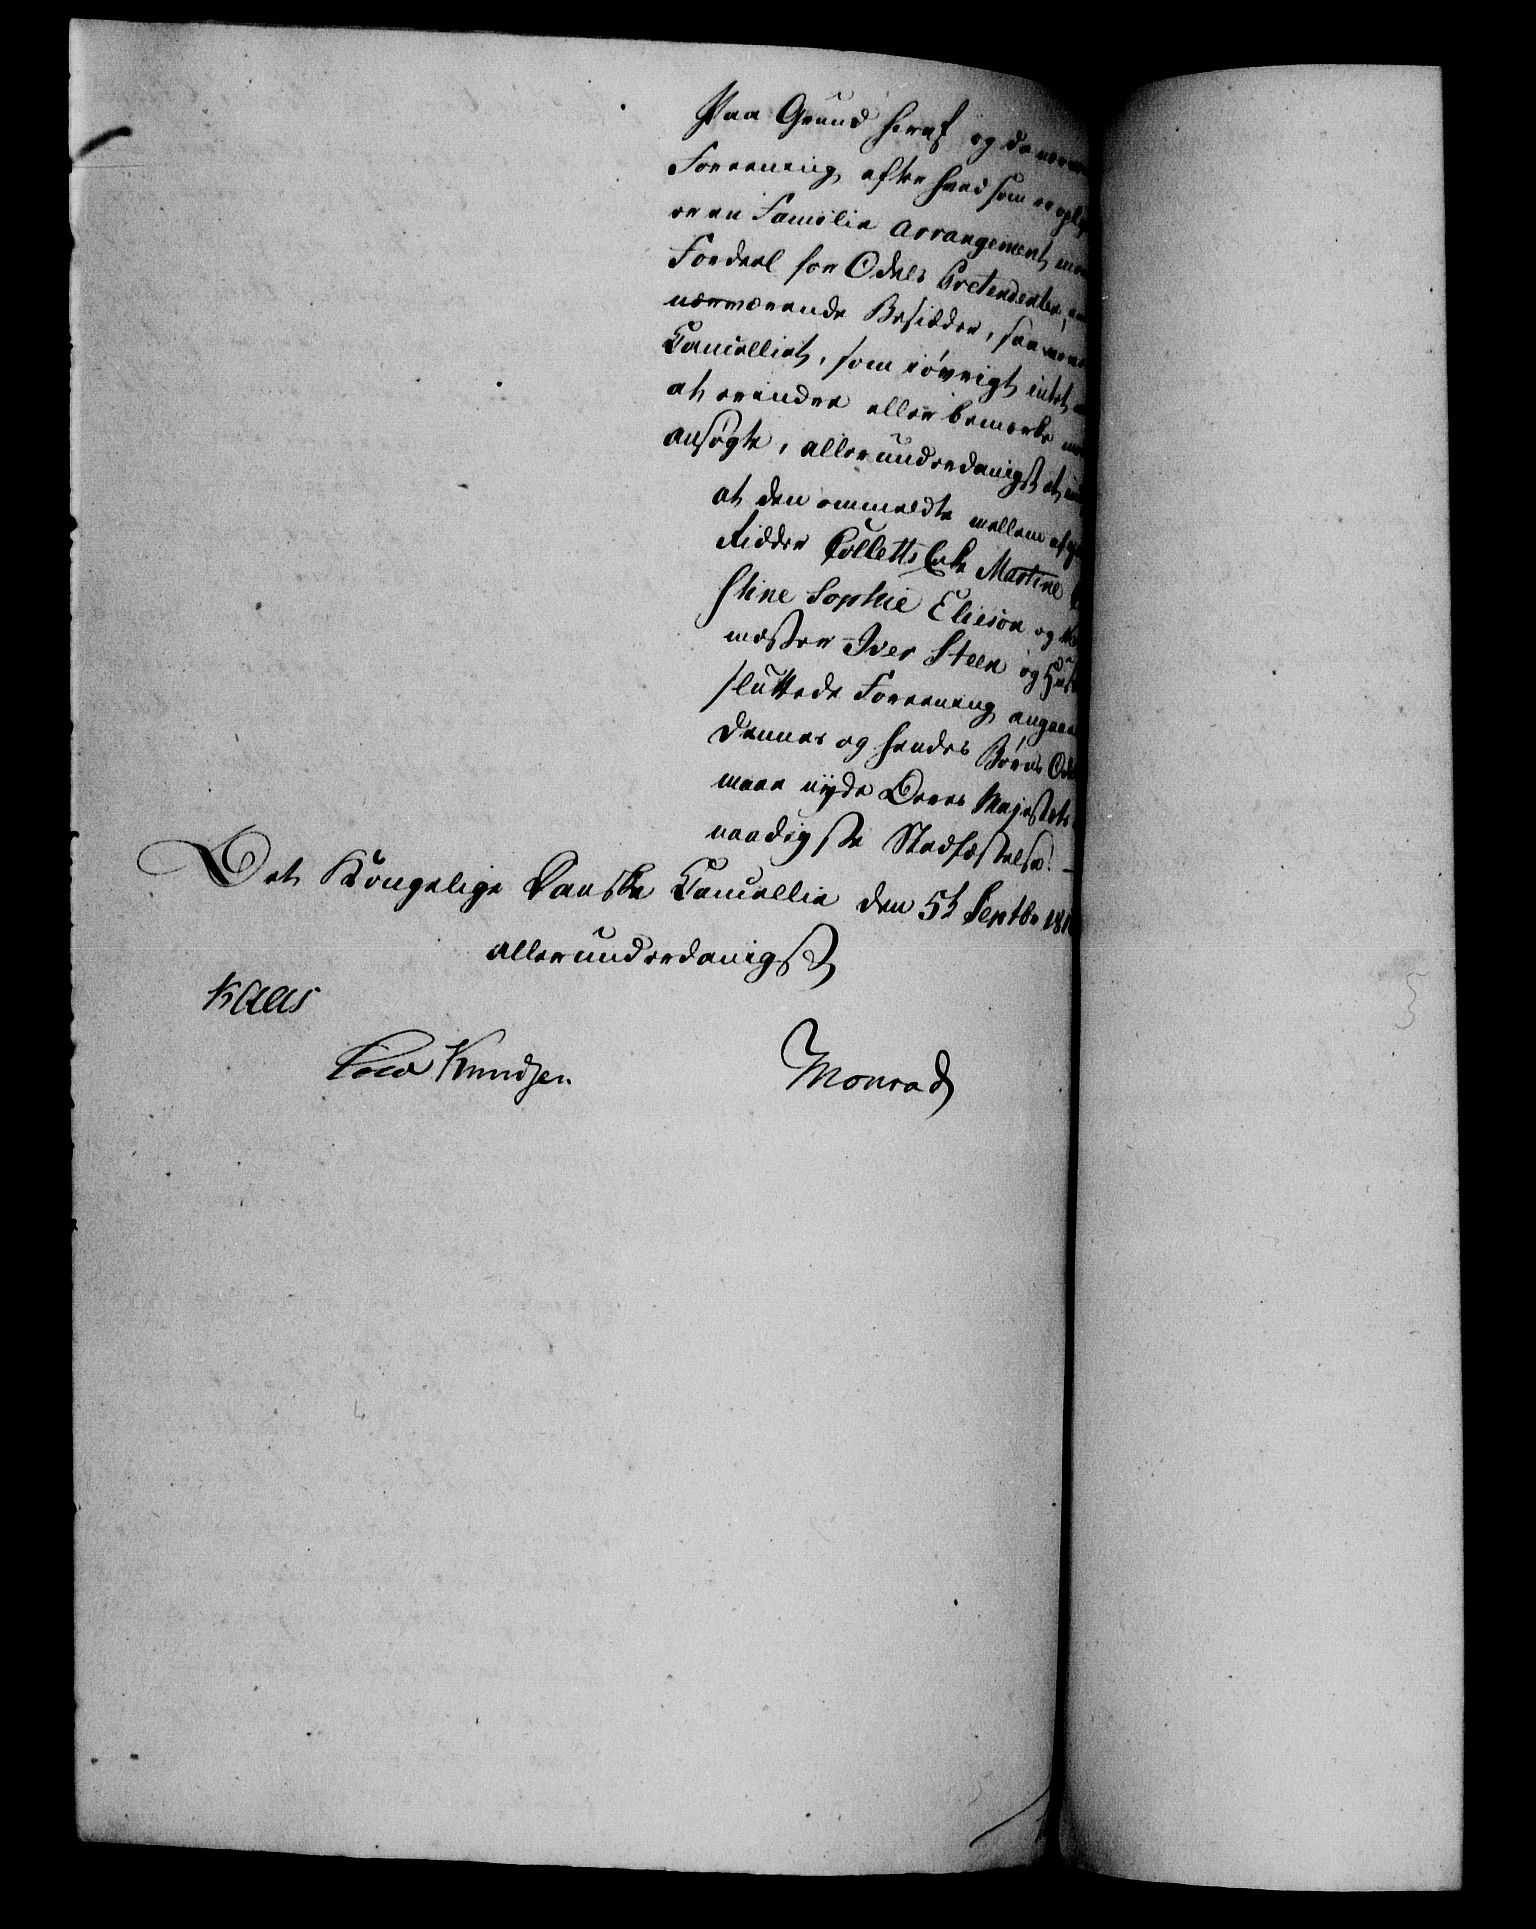 Paa Grund heraf og da
Foreening, efter hvad som er
er en Familie Arrangement,
Fordeel for Odels Prætendenter,
nærværende Besidder, saa
Cancelliet, som iøvrigt intet
at erindre eller bemærke
ansøgte, allerunderdanigst at
at den ommeldte mellem
Ridder Colletts Enke Martine
stine Sophie Elieson og
mester Iver Steen og
sluttede Foreening
dennes og hendes Børns
maae nyde Deres Majestæts
naadigste Stadfæstelse. —
Det Kongelige Danske Cancellie den 5t Septbr
allerunderdanigst
Kaas
Knudsen.
Monrad